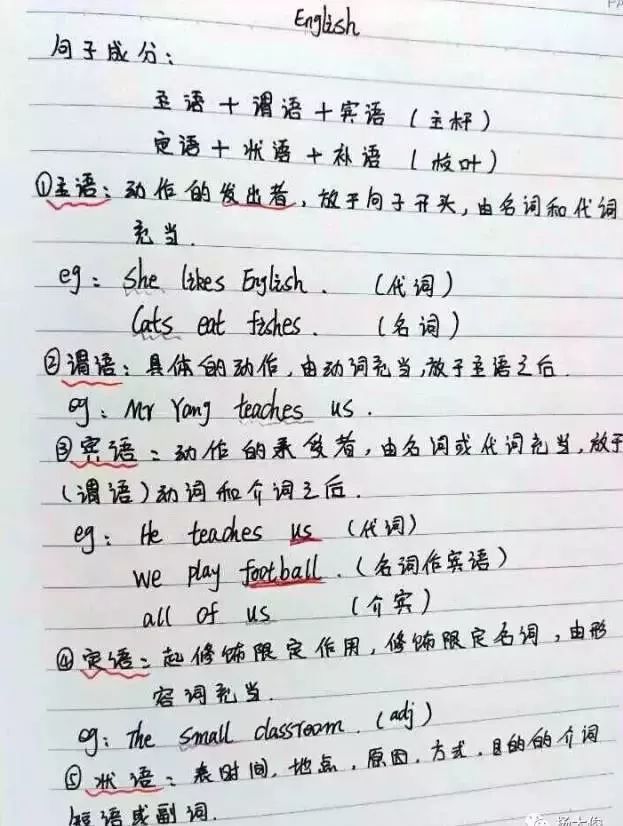 English
句子成分：
主语＋谓语＋宾语（主杆）
定语＋状语＋补语（枝叶）
①主语：动作的发出者，放于句子开头，由名词和代词
充当．
eg：She likes English．（代词）
Cats eat fishes．（名词）
②谓语：具体的动作，由动词充当，放于主语之后．
eg：Mr Yang teaches us．
③宾语：动作的承受者，由名词或代词充当，放于
（谓语）动词和介词之后．
eg：He teaches us（代词）
we play football．（名词作宾语）
all of us（介宾）
④定语：起修饰限定作用，修饰限定名词，由形
容词充当．
eg：The small classroom．（adj）
⑤状语：表时间，地点，原因，方式，目的的介词
短语或副词．